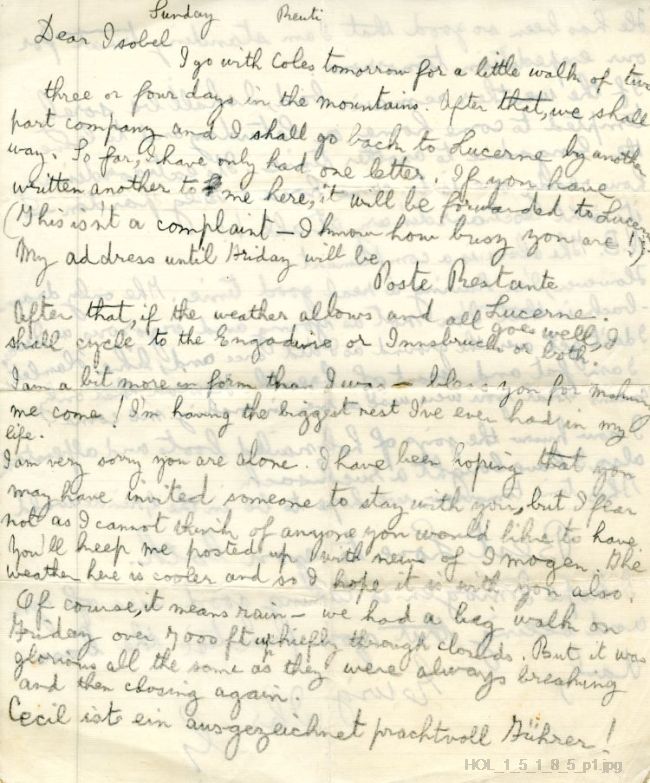 Sunday Reuti
Dear Isobel
I go with Coles tomorrow for a little walk of two
three or four days in the mountains. After that, we shall
part company and I shall go back to Lucerne by another
way. So far, I have only had one letter. If you have
written another to me here, it will be forwarded to Lucerne
(This isn't a complaint – I know how busy you are!).
My address until Friday will be
Poste Restante
Lucerne.
After that, if the weather allows and all goes well, I
shall cycle to the Engadine or Innsbruck or both.
I am a bit more in form than I was – bless you for making
me come! I'm having the biggest rest I've ever had in my
life.
I am very sorry you are alone. I have been hoping that you
may have invited someone to stay with you, but I fear
not as I cannot think of anyone you would like to have.
You'll keep me posted up with news of Imogen. The
weather here is cooler and so I hope it is with you also.
Of course, it means rain – we had a big walk on
Friday over 7000 ft up chiefly through clouds. But it was
glorious all the same as they were always breaking
and then closing again.
Cecil ist ein ausgezeichnet prachtvoll Führer!
HOL_1_5_1_8_5_p1.jpg